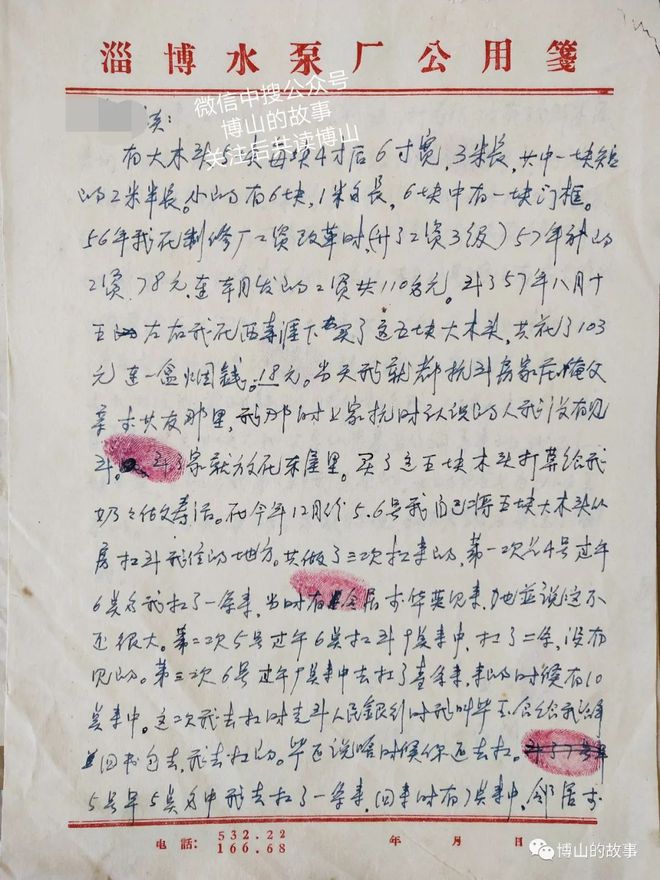 淄博水泵厂公用笺
微信中搜公众号
博山的故事
关注后共读博山
谈:
有大木头5块每块4寸后6寸宽,3米长,其中一块短
的2米半长。小的有6块,1米多长,6块中有一块门框。
56年我在制修厂工资改革时,(升了工资3级)57年补的
工资78元,连车月发的工资共110多元。到了57年八月十
五 左右我在西寿涯下买了这五块大木头,共花了103
元连一盒烟钱.18元。当天我就都抗到房家庄俺父
亲 共友那里,我那时上家抗时认识的人我没有见
到。到了家就放在东屋里。买了这五块木头打算给我
奶奶做寿活。在今年12月份5.6号我自己将五块大木头从
房 扛到我住的地方。共做了三次扛来的,第一次 4号过午
6点多我扛了一条来,当时有 居 华英见来,她並说这不
还很大。第二次5号过午6点扛到9点来中,扛了二条,没有
见的。第三次6号过午9点来中去扛了壹条来,来的时候有10
点来中。这二次我去扛时走到人民銀行时我叫毕玉 给我
回书包去,我去扛的。毕还说啥时候你还去扛。
5号早5点多中我去扛了一条来,回来时有7点来中,邻居
电話: 532.22
166.68
年 月 日
博山的故事